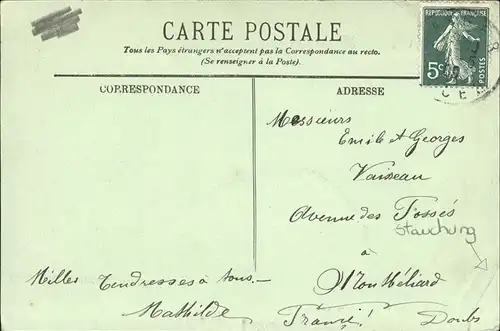 CARTE POSTALE
Tous les Pays étrangers n'acceptent pas la Correspondance au recto.
(Se renseigner à la Poste).
REPUBLIQUE FRANÇAISE
5c
POSTES
CORRESPONDANCE
ADRESSE
Messieurs
Emile et Georges
Avenue des Fossés
Stauchung
à
Montbéliard
France! Doubs
Milles tendresses à tous.
Mathilde